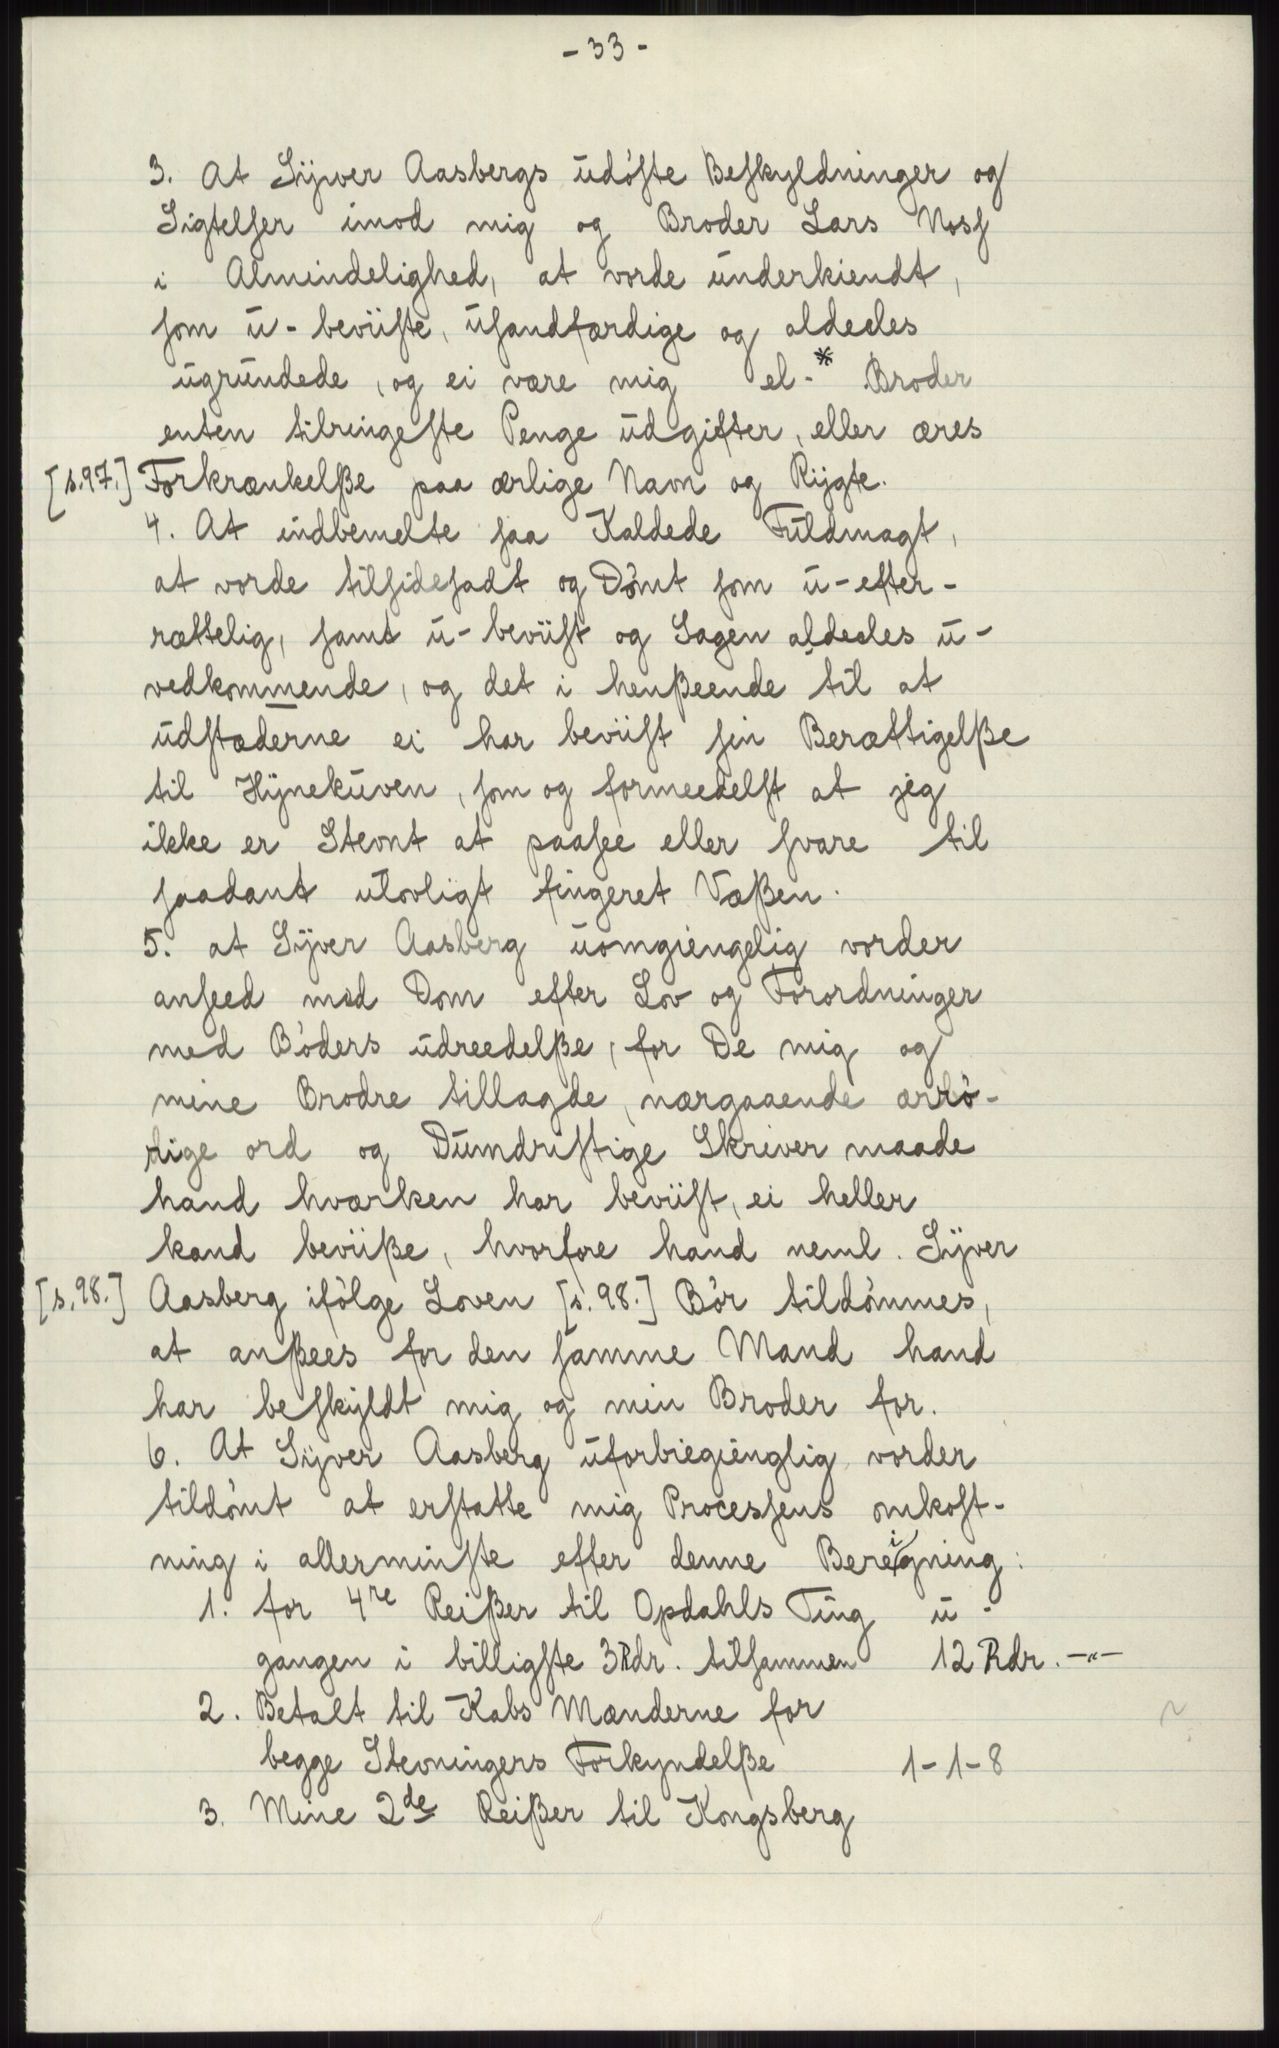 - 33 -
3. At Sÿver Aasbergs udöste Beskyldninger og
Sigtelser imod mig og Broder Lars Noss
i Almindelighed, at vorde underkiendt,
som u-beviiste, usandfærdige og aldeeles
ugrundede, og ei være mig el-* Broder
enten tilringeste Penge udgifter, eller æres
[s.97.] Forkrænkelße paa ærlige Navn og Rÿgte.
4. At indbemelte saa Kaldede Fuldmagt,
at vorde tilsidesadt og Dömt som u-efter-
rættelig, samt u-beviist og Sagen aldeeles u-
vedkommende, og det i henßeende til at
udstæderne ei har beviist sin Berættigelße
til Hÿnekuven, som og formeedelst at jeg
ikke er Stevnt at paasee eller svare til
saadant ulovligt fingeret Væßen.
5. at Sÿver Aasberg uomgiengelig vorder
anseed med Dom efter Lov og Forordninger
med Böders udreedelße, for De mig og
mine Brodre tillagde, nærgaaende ærrö-
rige ord og Dumdristige Skriver maade
hand hværken har beviist, ei heller
kand beviiße, hvorfore hand neml. Sÿver
[s.98.] Aasberg ifölge Loven [s.98.] Bör tildömmes,
at anßees for den samme Mand hand
har beskyldt mig og min Broder for.
6. At Sÿver Aasberg uforbiegienglig vorder
tildömt at erstatte mig Processens omkost-
ning i allerminste efter denne Bereigning:
1. for 4re Reißer til Opdahls Ting u-
gangen i billigste 3Rdr. tilsammen 12 Rdr. -"-
2. Betalt til Kabs Mænderne for
begge Stevningers Forkyndelße 1-1-8
3. Mine 2de Reißer til Kongsberg